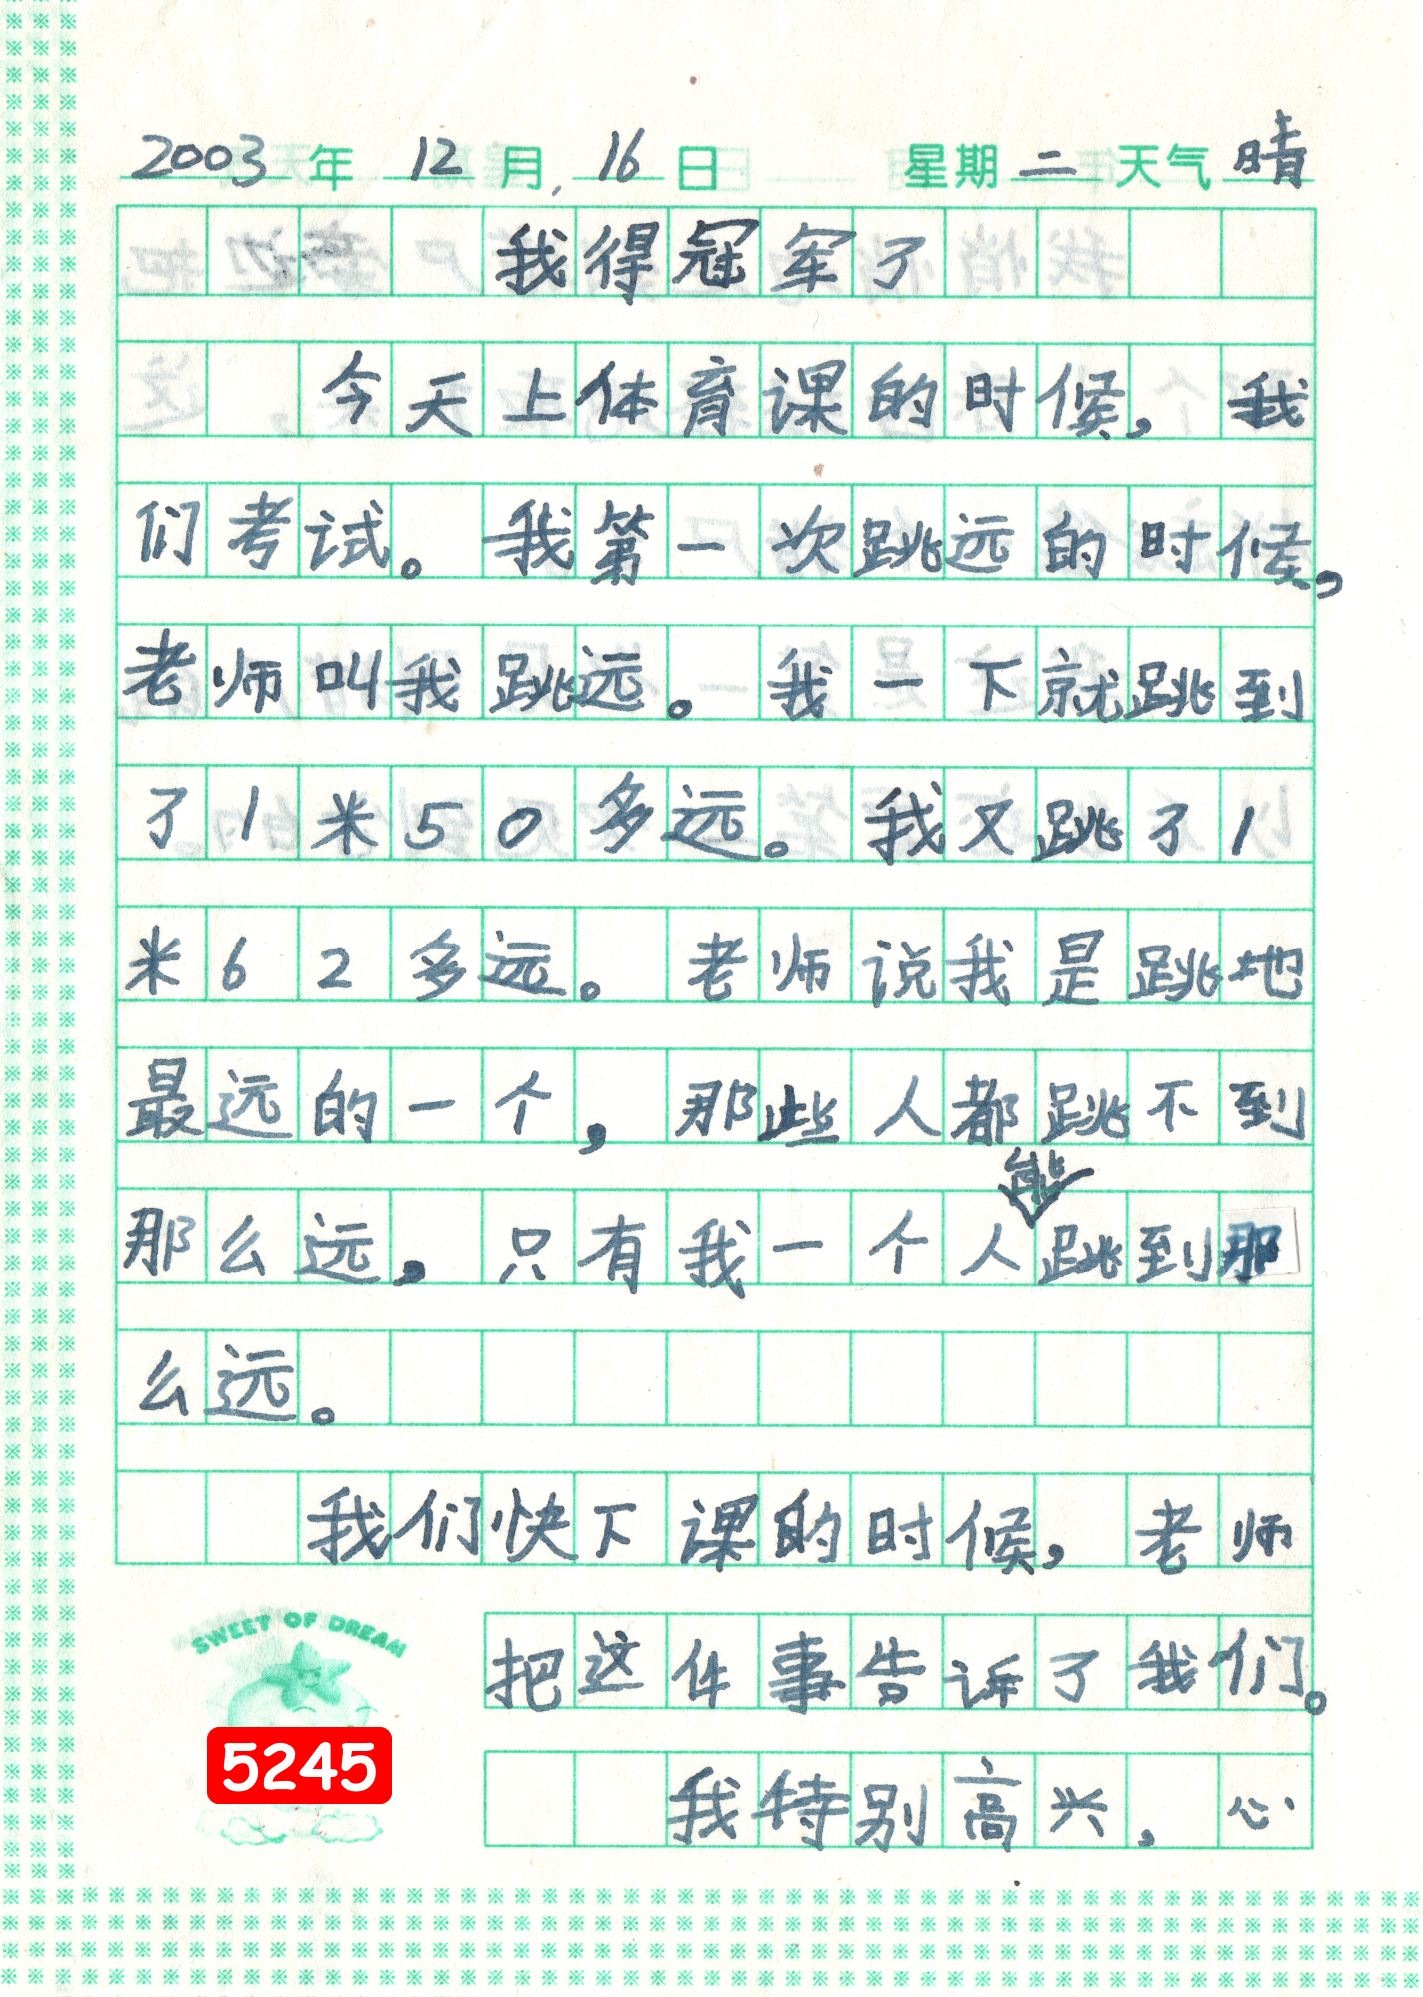 2003年 12月 16日 星期二 天气晴
我得冠军了
今天上体育课的时候，我
们考试。我第一次跳远的时候，
老师叫我跳远。我一下就跳到
了1米50多远。我又跳了1
米62多远。老师说我是跳地
最远的一个，那些人都跳不到
那么远，只有我一个人能跳到那
么远。
我们快下课的时候，老师
把这件事告诉了我们。
我特别高兴，心
SWEET OF DREAM
5245